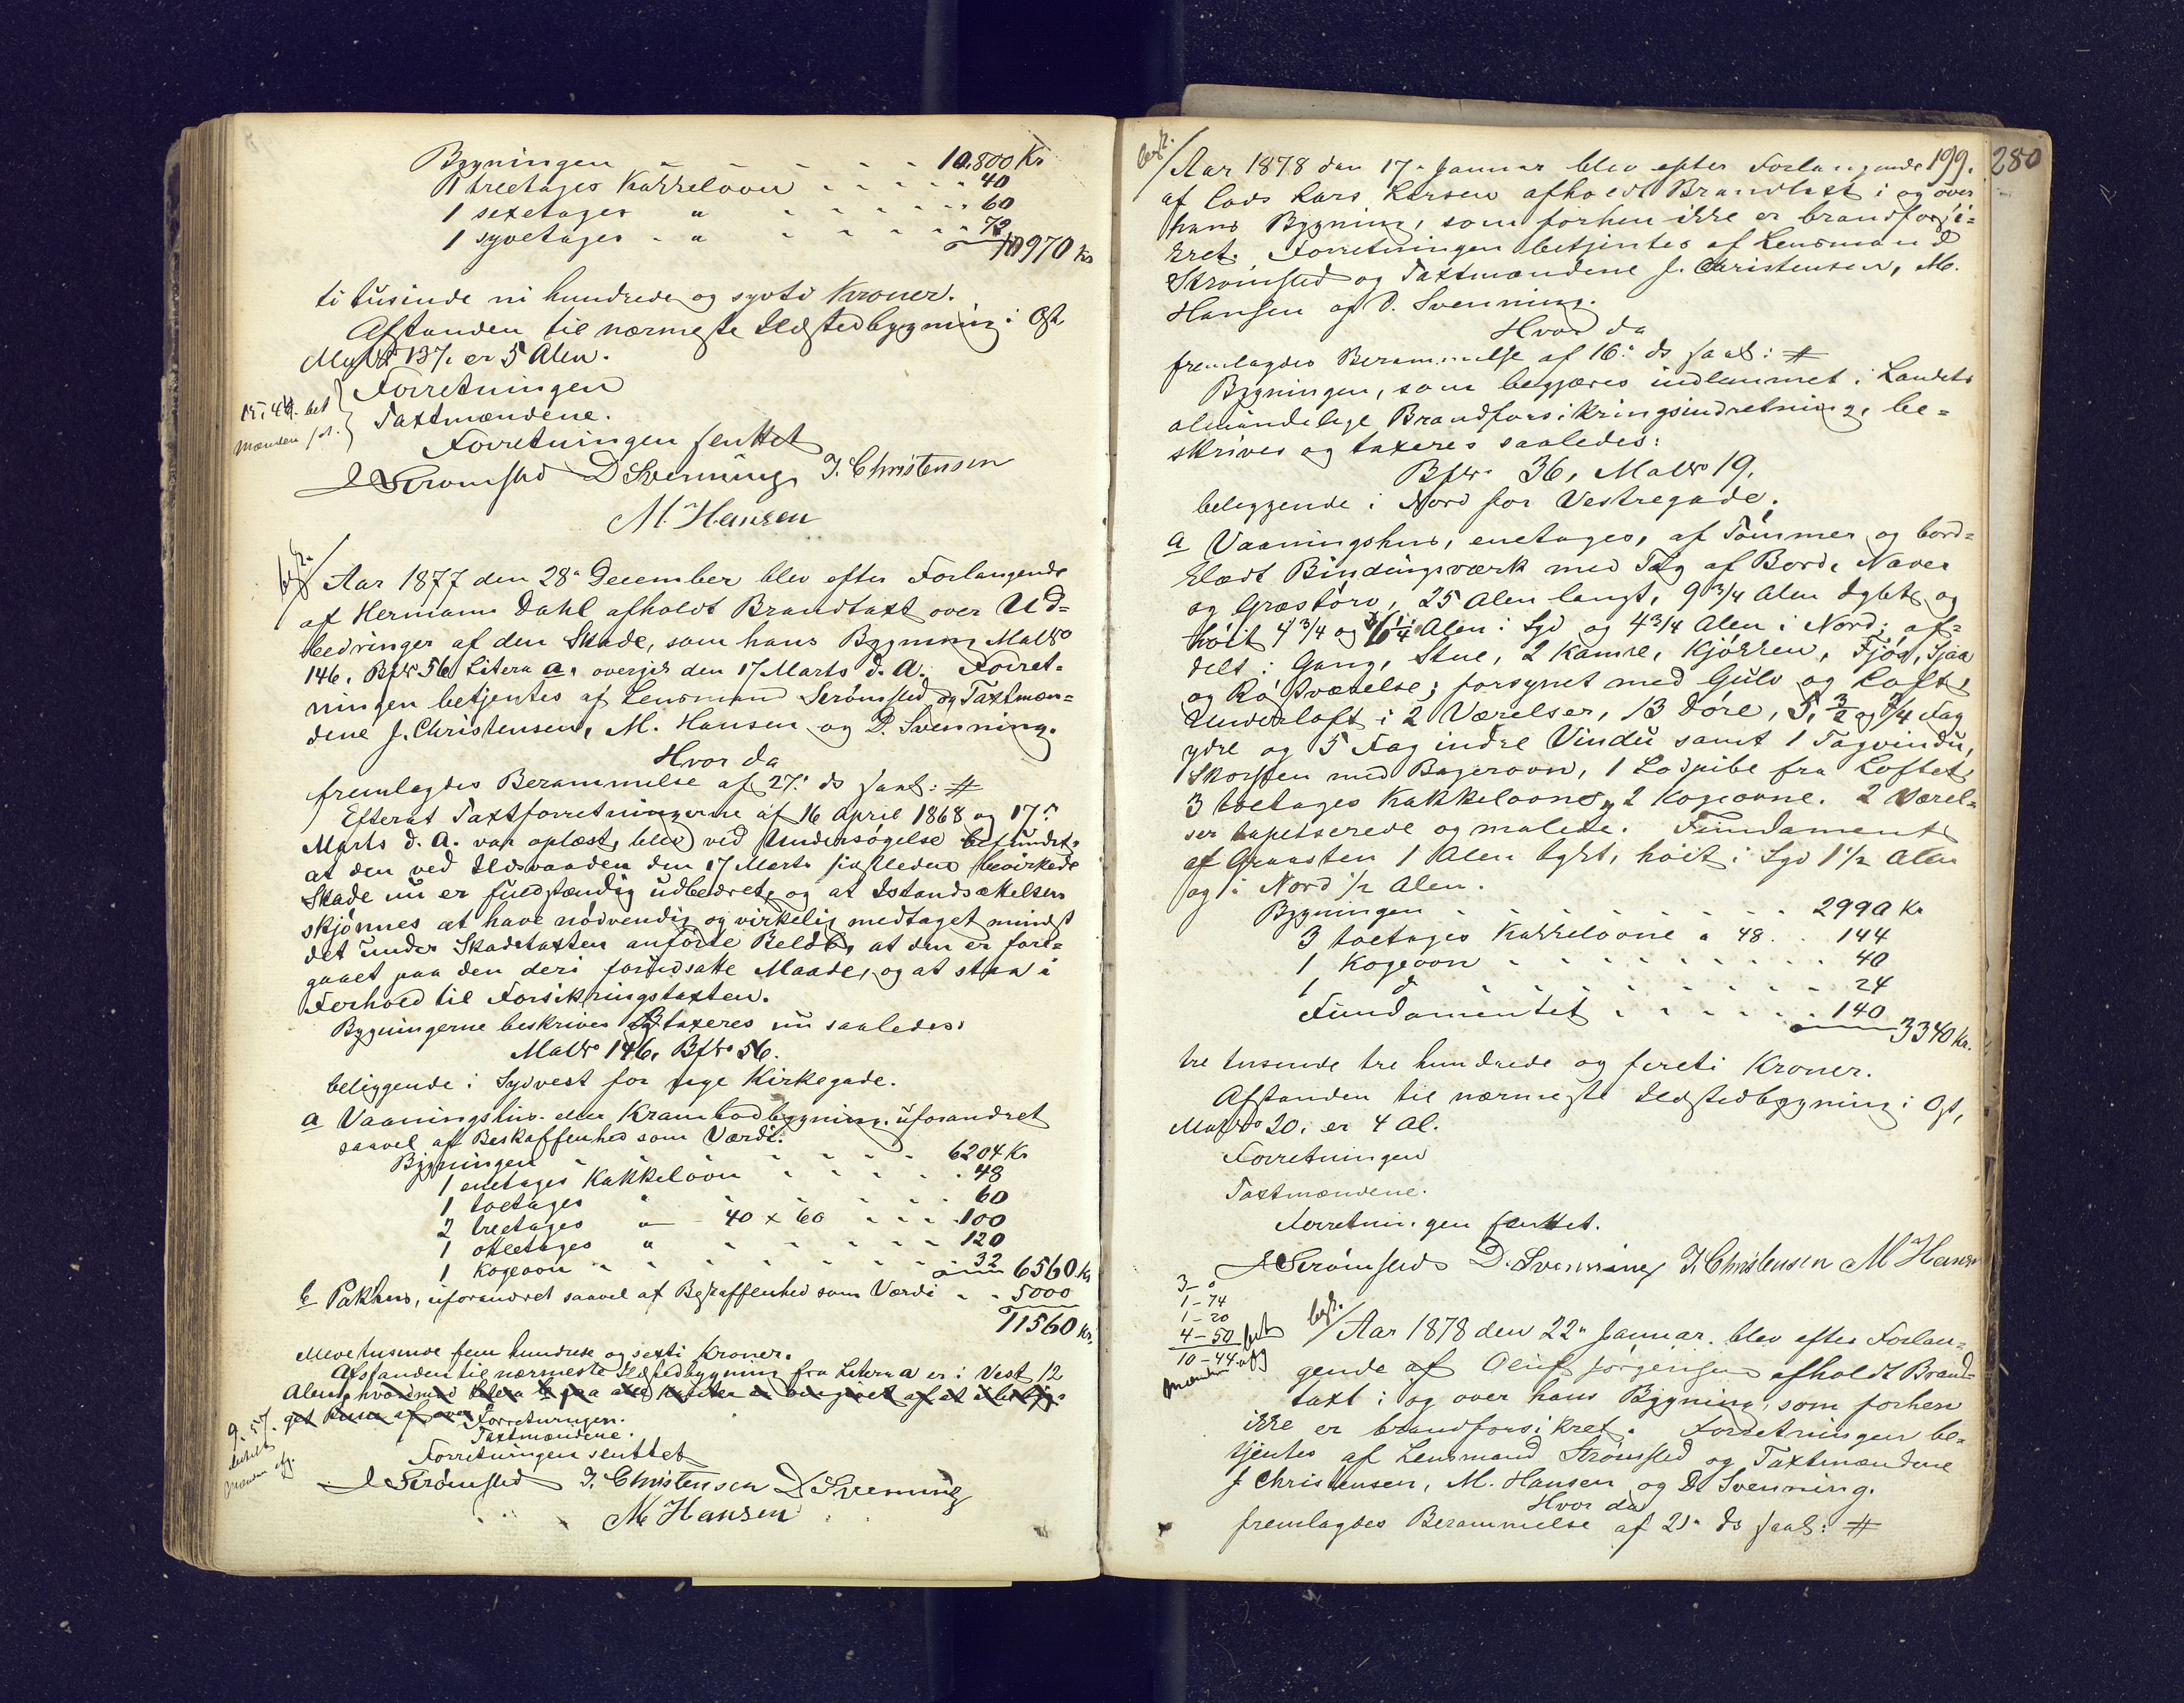 Bygningen - - - - - - 10,800 Kr
1 treetages Kakkelovn - - - - - 40
1 sexetages " - - - - - - 60
1 syvetages - " - - - - - - 72
10970 Kr
ti tusinde ni hundrede og sytti Kroner.
Afstanden til nærmeste Ildstedbygning i Øst
Matr No 137, er 5 Alen.
Forretningen
Taxtmændene.
15,44. bet
Mænden
Forretningen sluttet
Strömsted D Svenning J. Christensen
M. Hansen
Aar 1877 den 28de December blev efter Forlangende
af Hermann Dahl afholdt Brandtaxt over Ud-
bedringer af den Skade, som hans Bygning Matr No
146, Bfr 56 Litera a, overgik den 17 Marts d. A. Forret-
ningen betjentes af Lensmand Strömsted og Taxtmæn-
dene J. Christensen, M. Hansen og D. Svenning.
Hvor da
fremlagdes Berammelse af 27. ds saal: #
Efterat Taxtforretningerne af 16 April 1868 og 17de
Marts d. A. var oplæst, blev ved Undersøgelse befundet,
at den ved Ildsvaaden den 17 Marts sidstleden bevirkede
Skade nu er fuldstændig udbedret, og at Istandsættelsen
skjönnes at have nödvendig og virkelig medtaget mindst
det under Skadetaxten anförte Belöb, at den er fore-
gaaet paa den deri forudsatte Maade, og at staa i
Forhold til Forsikringstaxten.
Bygningerne beskrives og taxeres nu saaledes:
Matr No 146, Bfr No 56.
beliggende i Sydvest for nye Kirkegade.
a Vaaningshus eller Krambodbygning, uforandret
saavel af Beskaffenhed som Værdi.
Bygningen - - - - - - 6204 Kr
1 enetages Kakkelovn - - - - - 48
1 toetages " - - - - - 60
2 treetages " 40 x 60 - - - 100
1 ottetages " - - - - - 120
1 Kogeovn - - - - - - - 32
6560 Kr
b Pakhus, uforandret saavel af Beskaffenhed som Værdi - - 5000
11560 Kr.
elleve tusinde fem hundrede og sexti Kroner.
Afstanden til nærmeste Ildstedbygning fra Litera a er i Vest 12
Alen, hvorimod Litera b paa alle Kanter er omgivet af et
get
Forretningen.
Taxtmændene.
9.57.
betalt
Mænden
Forretningen sluttet
Strömsted J. Christensen D Svenning
M Hansen
199. 280
Aar 1878 den 17de Januar blev efter Forlangende
af Lods Lars Larsen afholdt Brandtaxt i og over
hans Bygning, som forhen ikke er brandforsi-
kret. Forretningen betjentes af Lensmand
Strömsted og Taxtmændene J. Christensen, M.
Hansen og D. Svenning.
Hvor da
fremlagdes Berammelse af 16de ds saal: #
Bygningen, som begjæres indlemmet i Landets
almindelige Brandforsikringsindretning, be-
skrives og taxeres saaledes:
Bfr. 36, Matr No 19,
beleggende i Nord for Vestregade.
a Vaaningshus, enetages, af Tömmer og bord-
klædt Bindingsværk med Tag af Bord, Næver
og Græstörv, 25 Alen langt, 9 3/4 Alen dybt og
höit 4 3/4 og 6 1/4 Alen i Syd og 4 3/4 Alen i Nord; af-
delt i Gang, Stue, 2 Kamre, Kjökken, Fjös, Sjaa
og Rögtværelse; forsynet med Gulv og Loft,
Underloft i 2 Værelser, 13 Döre, 5, 3/2 og 3/4 Fag
ydre og 5 Fag indre Vindu samt 1 Tagvindu,
Skorsten med Bagerovn, 1 Lodpibe fra Loftet,
3 toetages Kakkelovne, 2 Kogeovne. 2 Værel-
ser tapetserede og malede. Fundament
af Graasten 1 Alen tykt, höit i Syd 1 1/2 Alen
og i Nord 1/2 Alen.
Bygningen - - - - - - - 2992 Kr
3 toetages Kakkelovne a 48 - - 144
1 Kogeovn - - - - - - - - 40
1 do - - - - - - - 24
Fundamentet - - - - - - 140
3340 Kr.
tre tusende tre hundrede og firti Kroner.
Afstanden til nærmeste Ildstedbygning i Øst,
Matr No 20, er 4 Al.
Forretningen
Taxtmændene.
Forretningen sluttet.
Strömsted D. Svenning J. Christensen M Hansen
3 -
1 - 74
1 - 20
4 - 50
10 - 44
Mænden
Aar 1878 den 22de Januar blev efter Forlan-
gende af Oluf Jörgensen afholdt Brand-
taxt i og over hans Bygning, som forhen
ikke er brandforsikret. Forretningen be-
tjentes af Lensmand Strömsted og Taxtmændene
J Christensen, M. Hansen og D. Svenning.
Hvor da
fremlagdes Berammelse af 21de ds saal: #